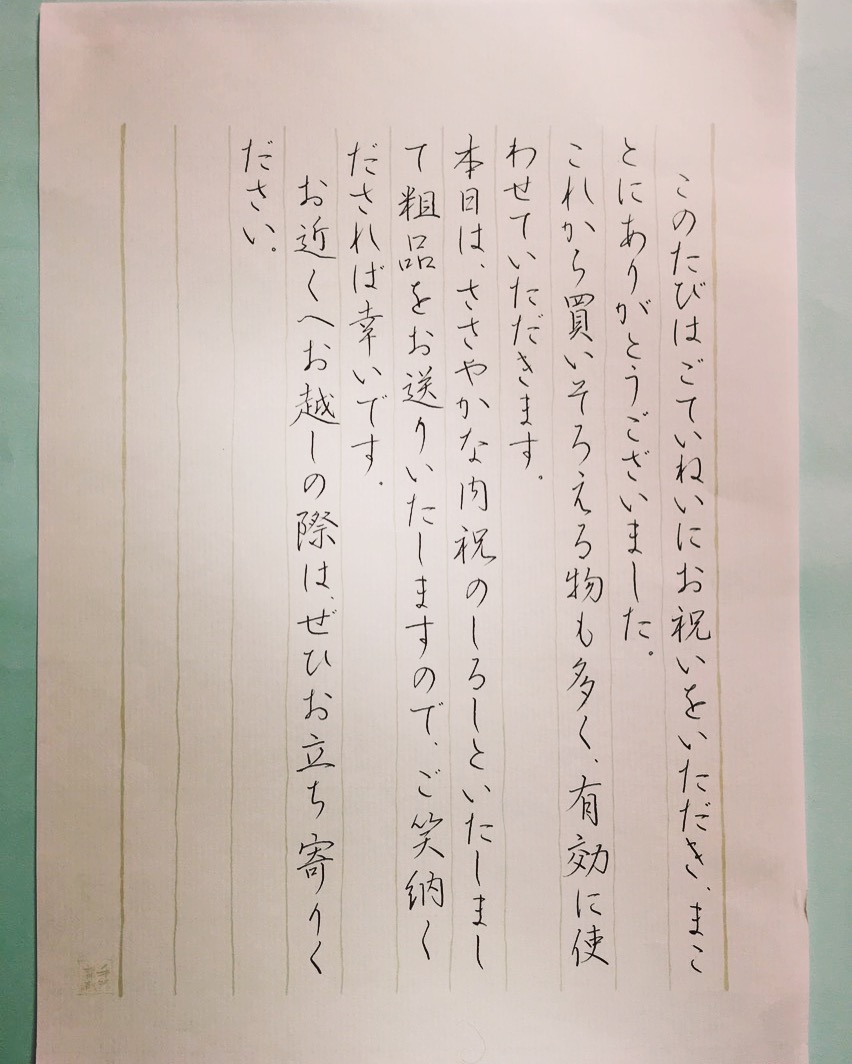 このたびはごていねいにお祝いをいただき、まこ
とにありがとうございました。
これから買いそろえる物も多く、有効に使
わせていただきます。
本日は、ささやかな内祝のしるしといたしまし
て粗品をお送りいたしますので、ご笑納く
だされば幸いです。
お近くへお越しの際は、ぜひお立ち寄りく
ださい。